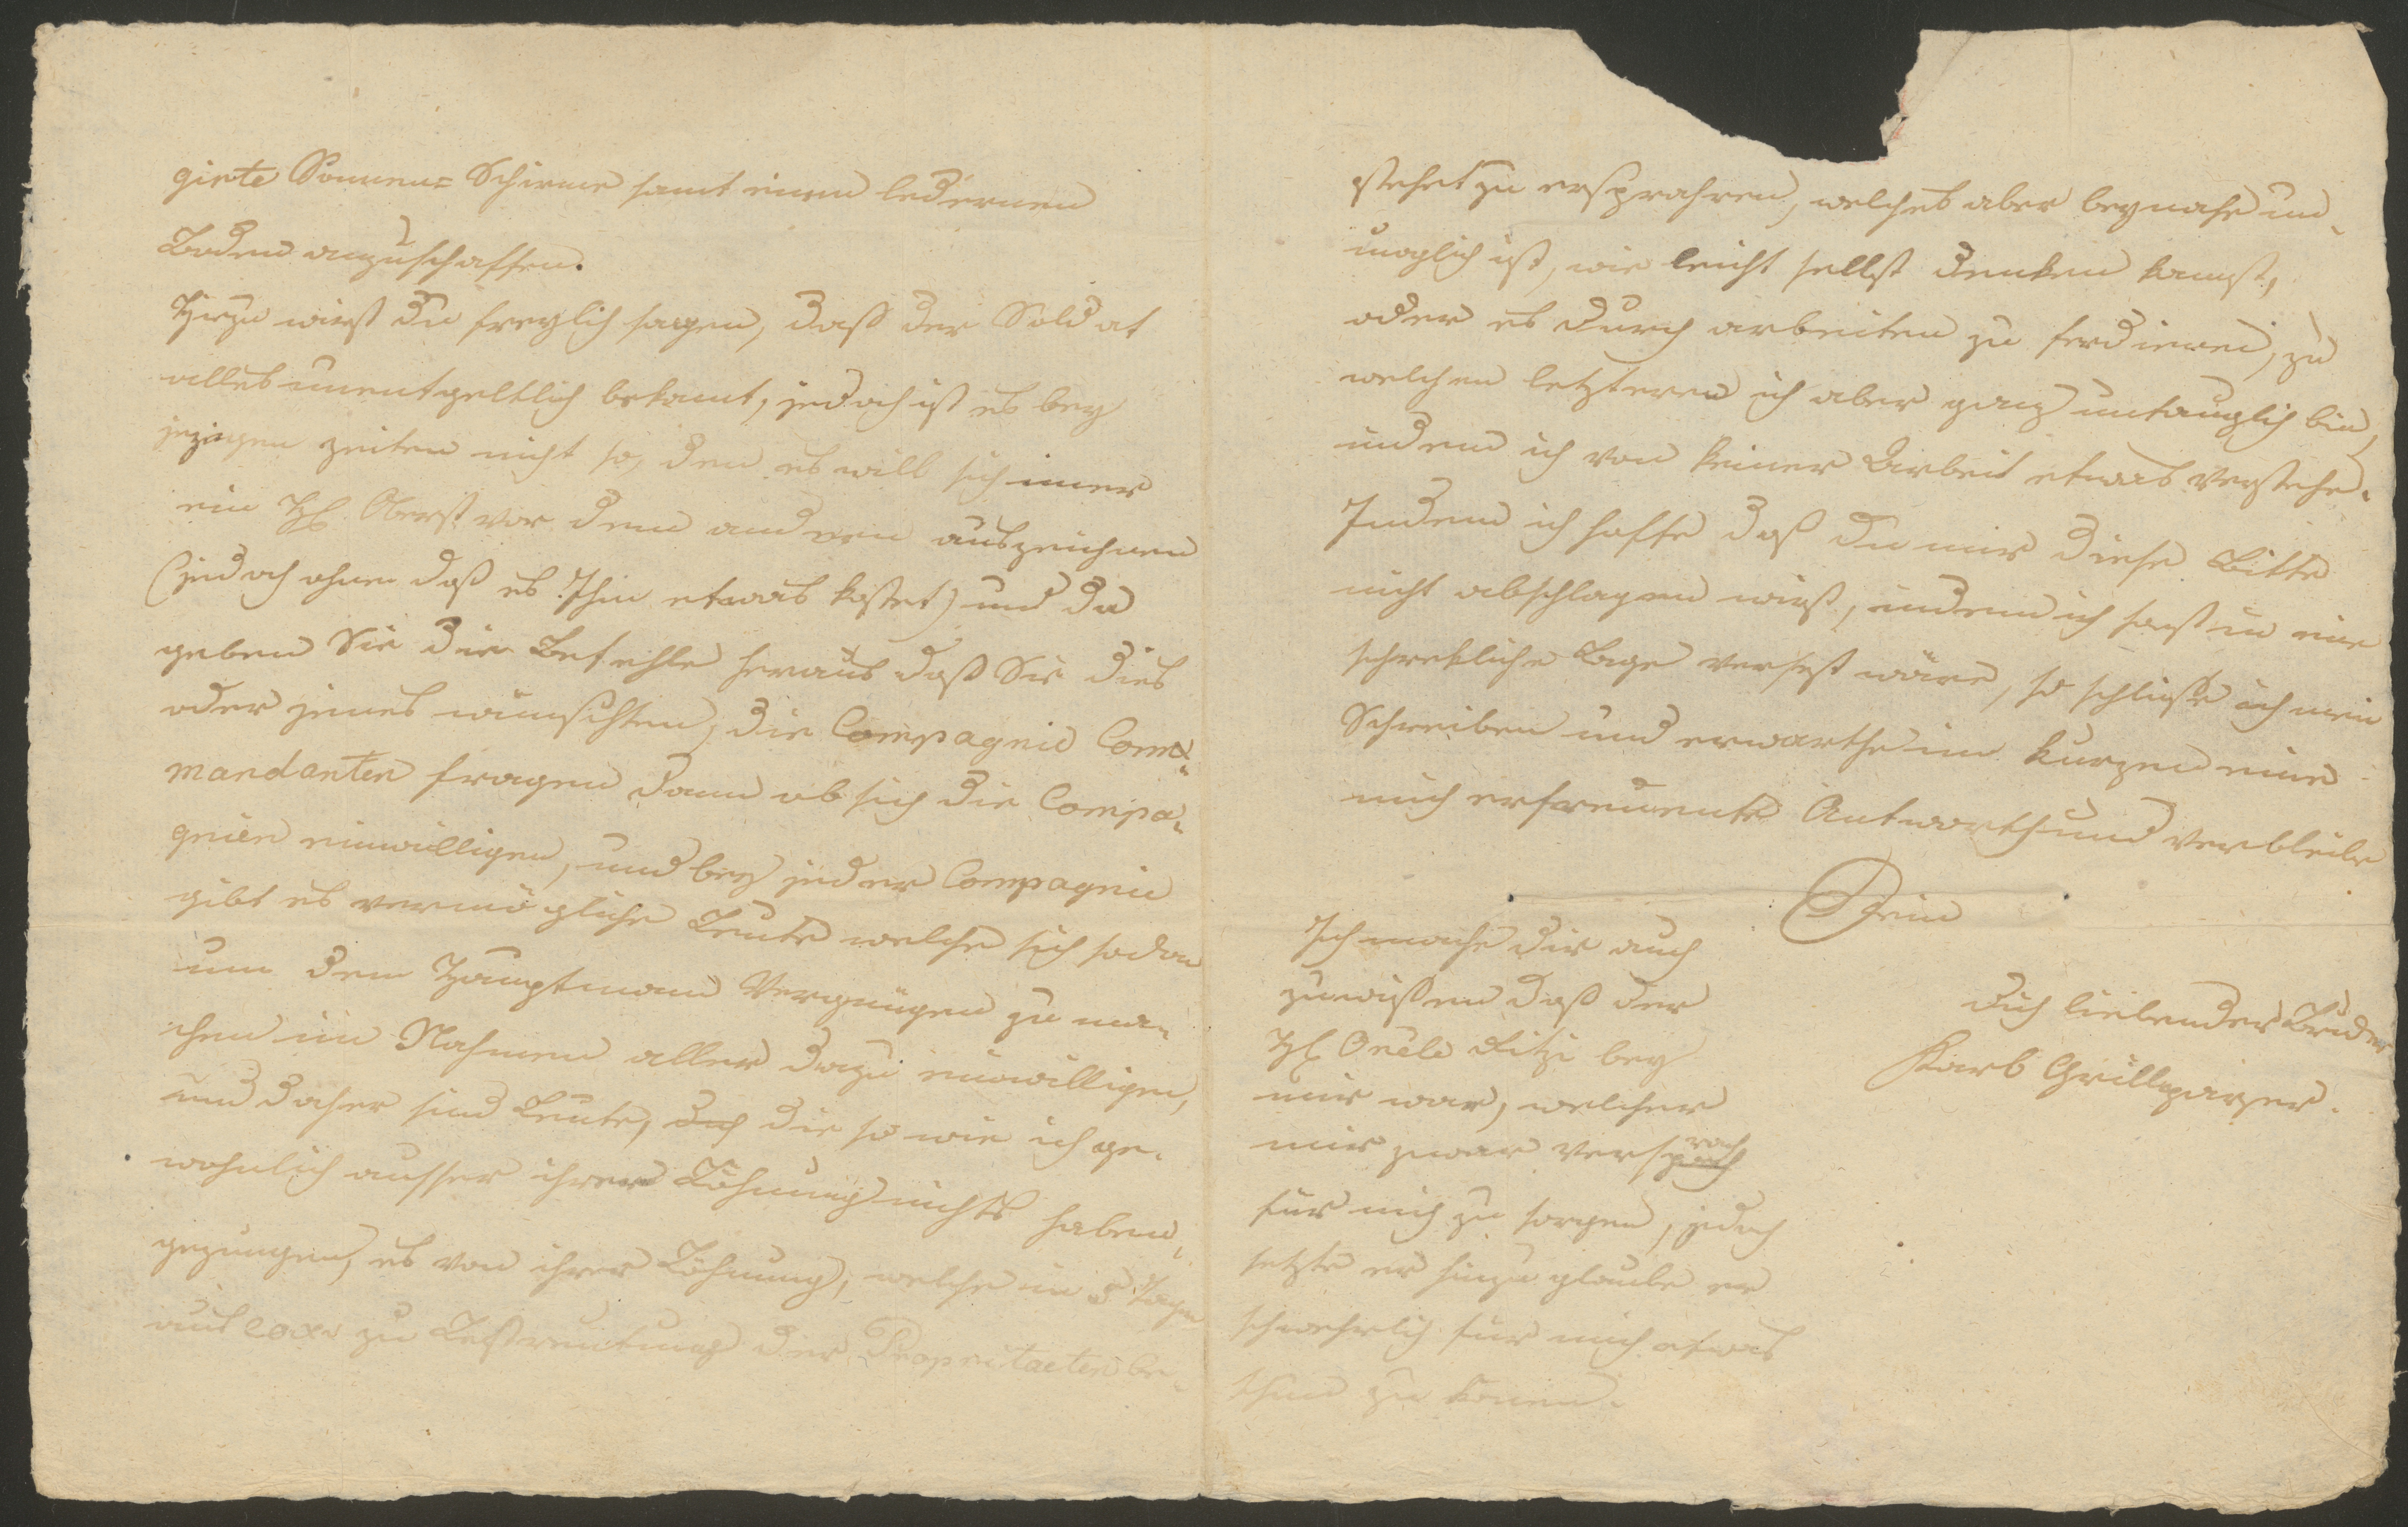 girte Sonnen= Schirme samt einen ledernen
Boden anzuschaffen.
Hirzu wirst du freylich sagen, daß der Soldat
alles unentgeltlich bekomt, jedoch ist es bey
jezigen zeiten nicht so, den es will sich imer
ein H. Oberst vor dem anderen auszeichnen
(jedoch ohne daß es Ihm etwas kostet) und da
geben Sie die Befehle heraus daß Sie dies
oder jenes wünschten, die Compagnie Com=
mandanten fragen dann ob sich die Compa=
gnien einwilligen, und bey jeder Compagnie
gibt es vermögliche Leute welche sich sodan
um dem Hauptmann Vergnügen zu ma=
chen im Nahmen aller dazu einwilligen,
und daher sind Leute, die so wie ich ge=
wohnlich ausser ihrer Löhnung nichts haben,
gezungen, es von ihrer Löhnung, welche in 5 Tagen
aus xr zu Bestreitung der be=
stehet zu ersprahren, welches aber beynahe un=
moglich ist, wie leicht selbst denken kanst,
oder es durch arbeiten zu ferdienen, zu
welchen letzteren ich aber ganz untauglich bin,
indem ich von keiner Arbeit etwas verstehe.
Indem ich hoffe daß du mir diese Bitte
nicht abschlagen wirst, indem ich sonst in eine
schrekliche Lage versezt wäre, so schließe ich mein
Schreiben und erwarthe im kurzen eine
mich erfreuente Antworth und verbleibe
Dein
dich liebender Bruder
Karl Grillparzer.
Ich mache dir auch
zuwißen daß der
H. Rizi bey
mir war, welcher
mir zwar versprach
für mich zu sorgen, jedoch
setzte er hinzu glaube er
schwehrlich für mich etwas
thun zu konen.